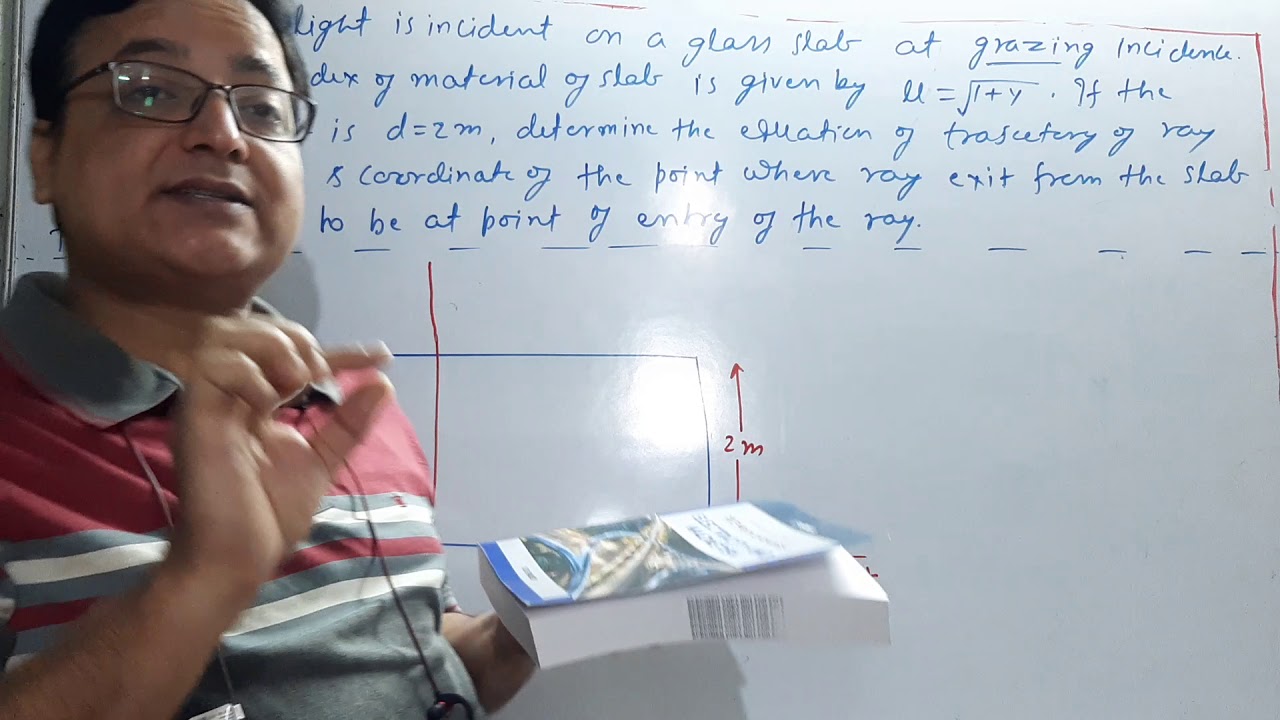 light is incident on a glass slab at grazing incidence.
dex of material of slab is given by μ = √1+y . If the
is d = 2m, determine the equation of trajectory of ray
& coordinate of the point where ray exit from the slab
to be at point of entry of the ray.
2 m